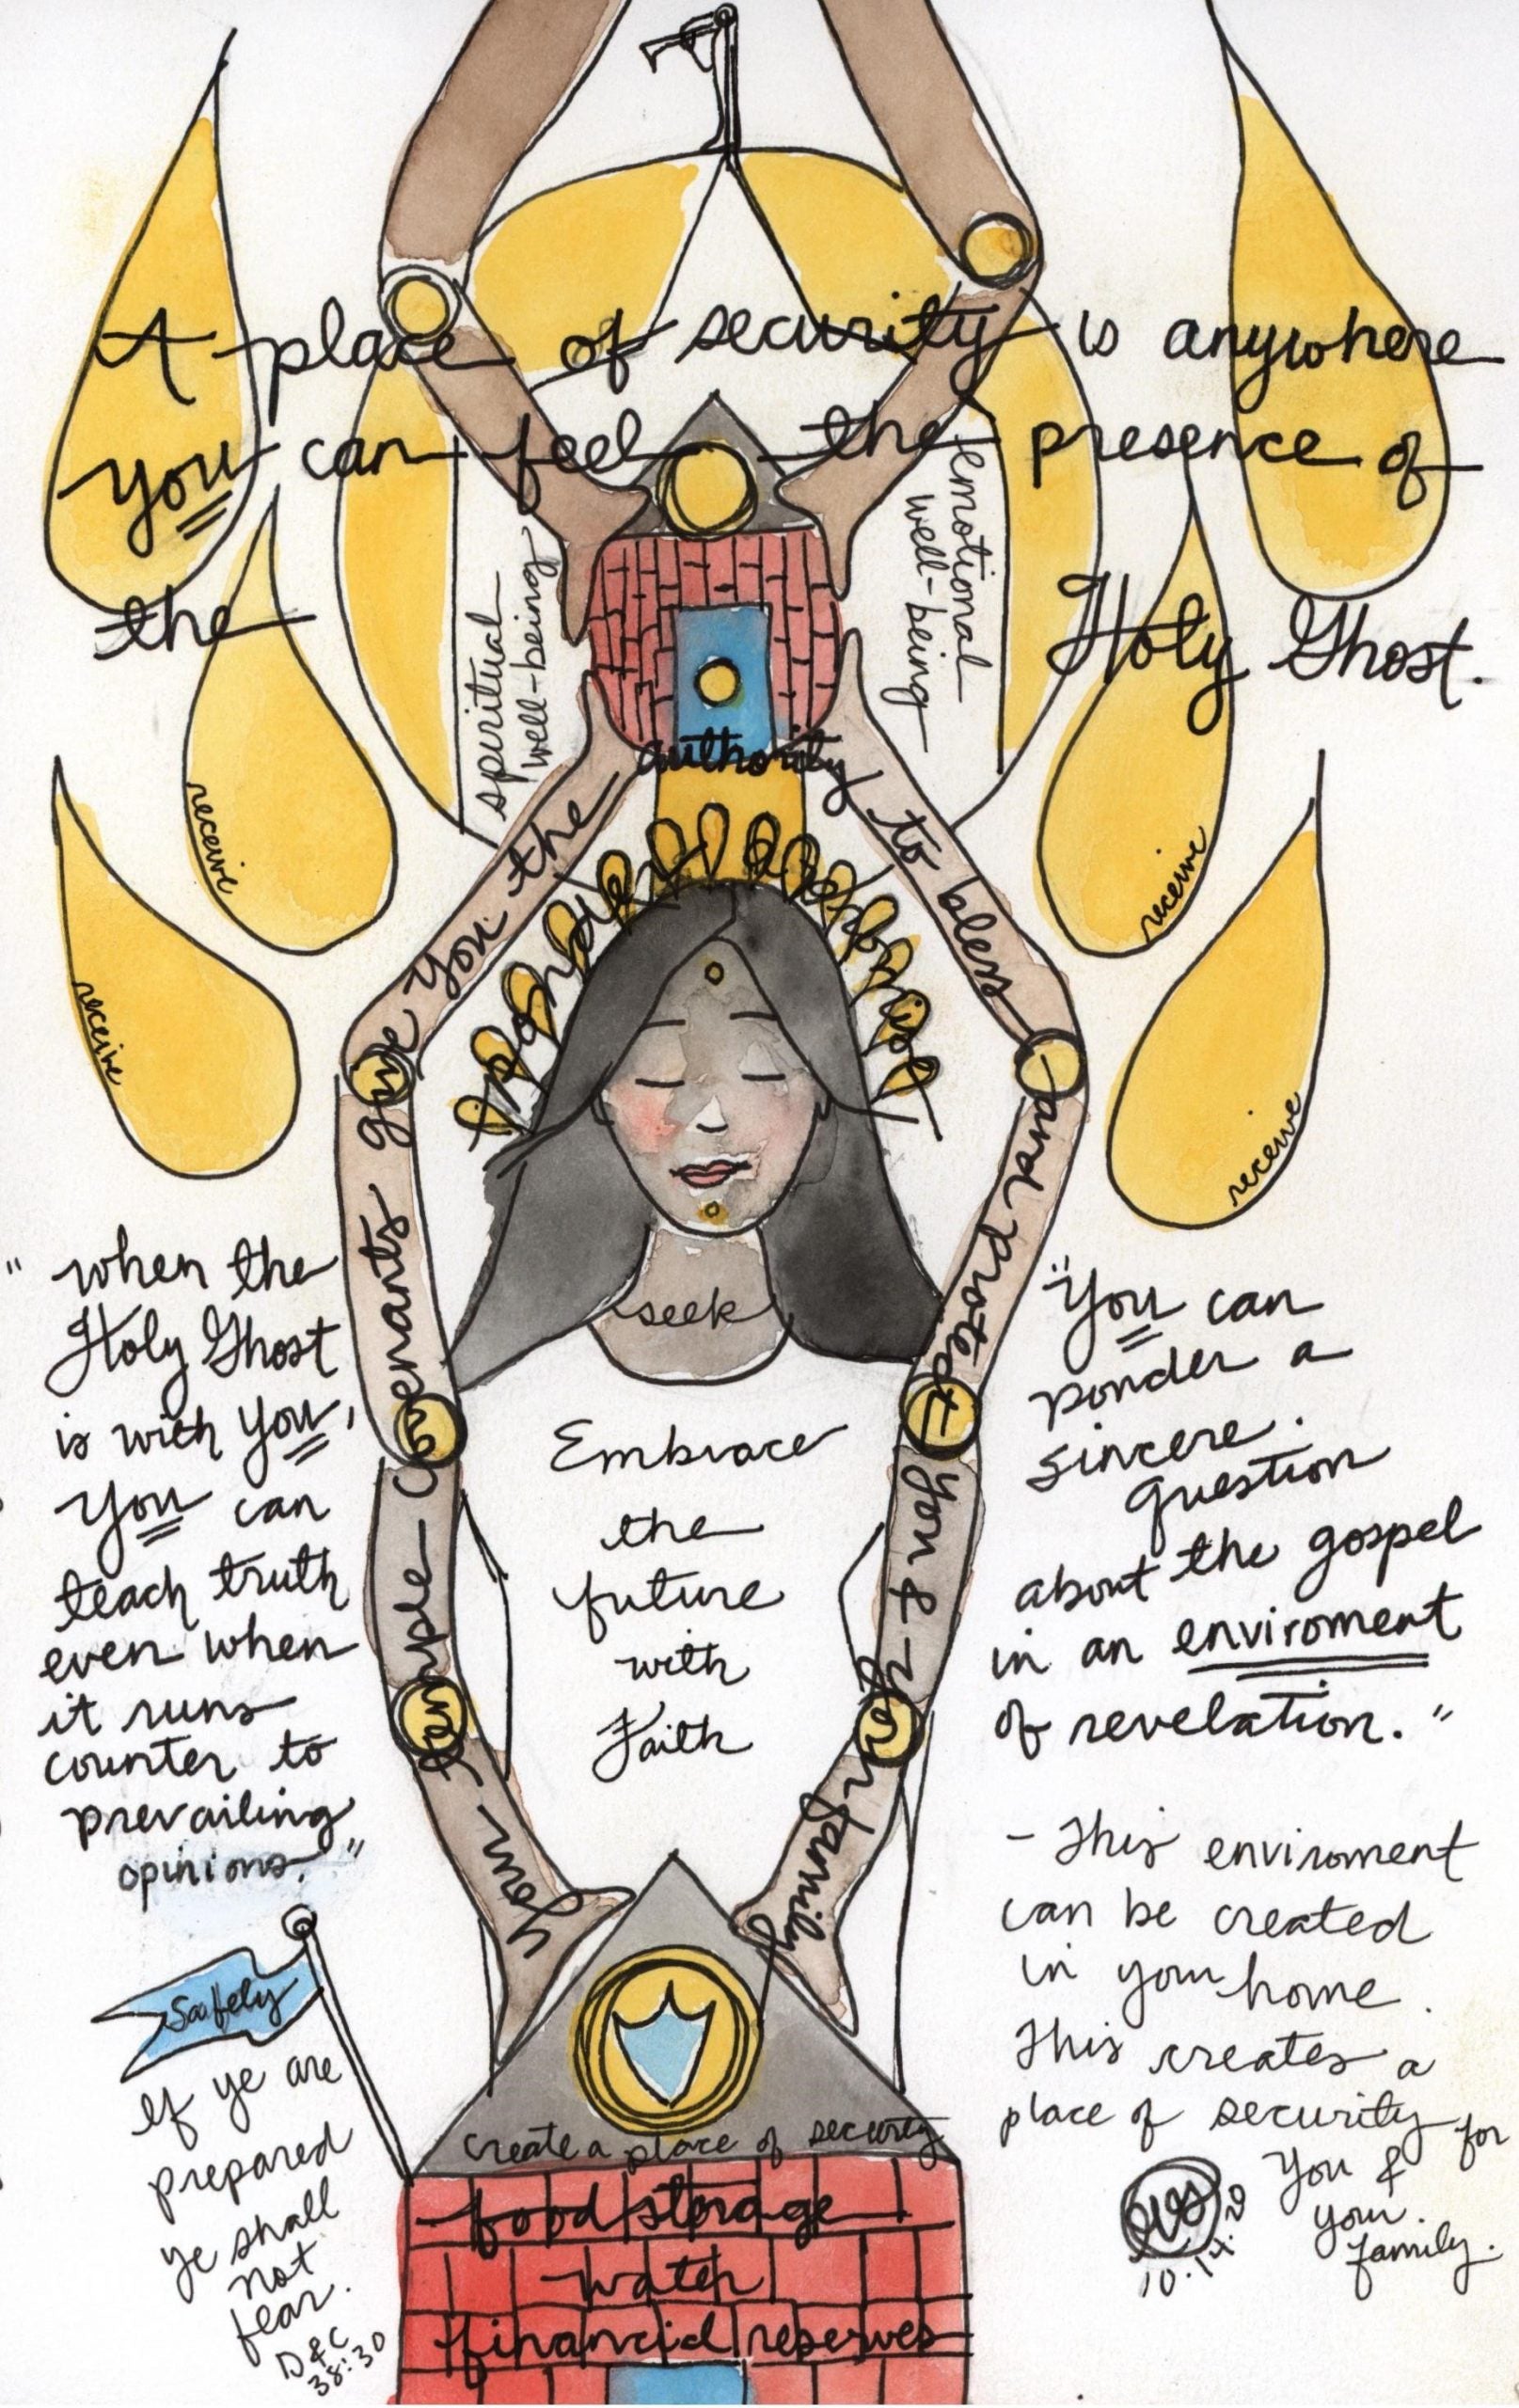 A place of security is anywhere
you can feel the presence of
the Holy Ghost.
spiritual
well-being
emotional
well-being
receive
receive
receive
receive
your temple covenants give you the authority to bless and protect you & your family
seek
Embrace
the
future
with
Faith
"when the
Holy Ghost
is with you,
you can
teach truth
even when
it runs
counter to
prevailing
opinions."
"You can
ponder a
sincere
question
about the gospel
in an enviroment
of revelation."
- This enviroment
can be created
in your home.
This creates a
place of security for
you &
your
family.
10.14.20
Safely
If ye are
prepared
ye shall
not
fear.
D&C
38:30
create a place of security
food storage
water
financial reserves